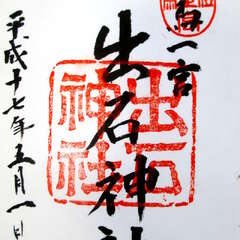 一宮
出石神社
出石
神社
平成十七年五月一日